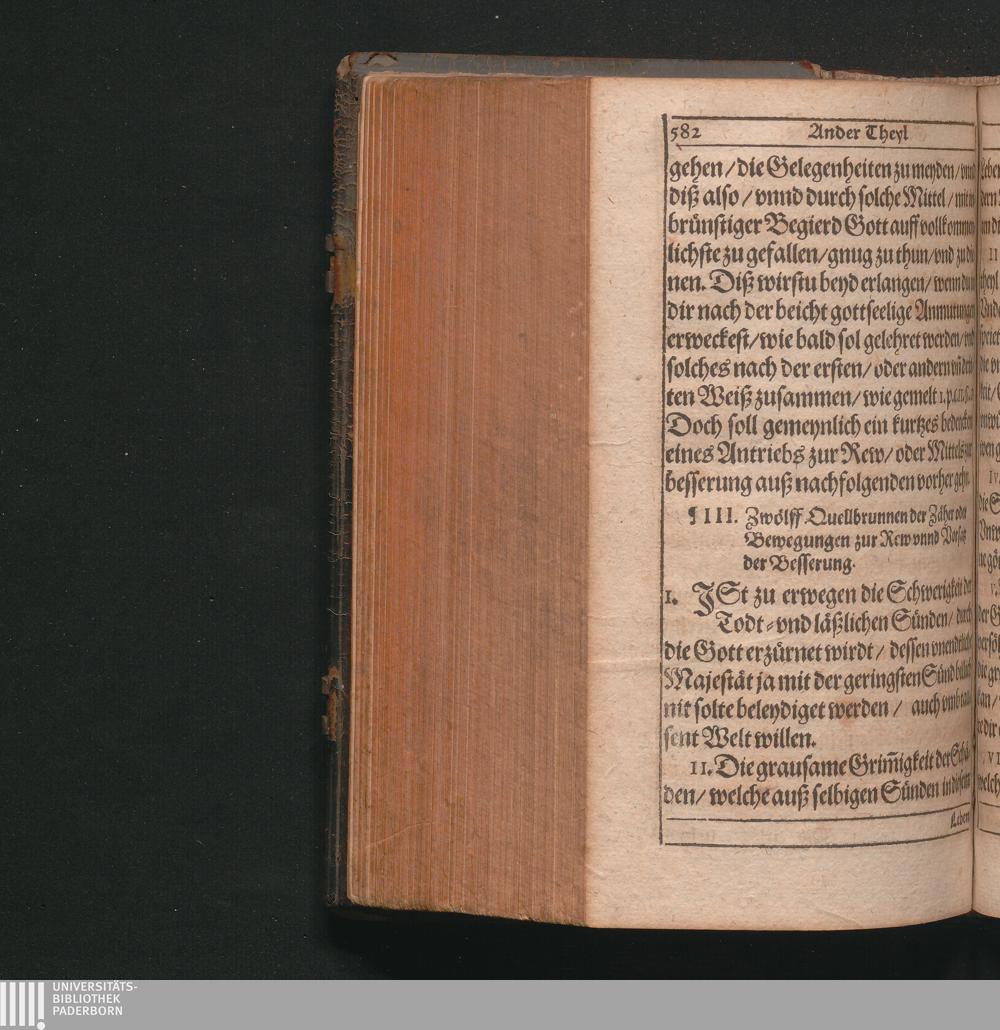 582 Ander Theyl
gehen / die Gelegenheiten zu meyden / vnnd
diß also / vnnd durch solche Mittel / mit
brünstiger Begierd Gott auff vollkommen
lichste zu gefallen / gnug zu thun / vnd zu die
nen. Diß wirstu beyd erlangen / wenn du
dir nach der beicht gottseelige Anmutungen
erweckest / wie bald sol gelehret werden / vnd
solches nach der ersten / oder andern vñ drit
ten Weiß zusammen / wie gemelt 1.p.
Doch soll gemeynlich ein kurtzes bedencken
eines Antriebs zur Rew / oder Mittels zur
besserung auß nachfolgenden vorher gehn.
¶ III. Zwölff Quellbrunnen der Zäher oder
Bewegungen zur Rew vnnd Vorsatz
der Besserung.
I. JSt zu erwegen die Schwerigkeit der
Todt- vnd läßlichen Sünden / durch
die Gott erzürnet wirdt / dessen vnendtliche
Majestät ja mit der geringsten Sünd
nit solte beleydiget werden / auch vmb
sent Welt willen.
II. Die grausame Grim̃igkeit der Schä
den / welche auß selbigen Sünden in diesem
Leben
UNIVERSITÄTS-
BIBLIOTHEK
PADERBORN